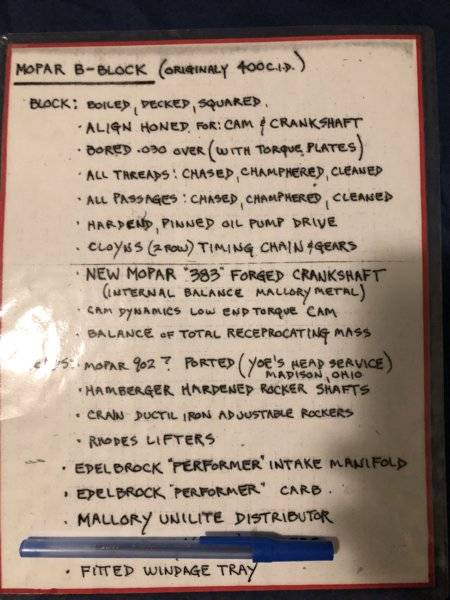 MOPAR B-BLOCK (ORIGINALY 400 C.I.D.)
BLOCK: BOILED, DECKED, SQUARED.
· ALIGN HONED FOR: CAM & CRANKSHAFT
· BORED .030 OVER (WITH TORQUE PLATES)
· ALL THREADS: CHASED, CHAMPHERED, CLEANED
· ALL PASSAGES: CHASED, CHAMPHERED, CLEANED
· HARDEND, PINNED OIL PUMP DRIVE
· CLOYNS (2 ROW) TIMING CHAIN & GEARS
· NEW MOPAR "383" FORGED CRANKSHAFT
(INTERNAL BALANCE MALLORY METAL)
· CAM DYNAMICS LOW END TORQUE CAM
· BALANCE OF TOTAL RECEPROCATING MASS
: MOPAR 902? PORTED (YOE'S HEAD SERVICE)
MADISON, OHIO
· HAMBERGER HARDENED ROCKER SHAFTS
· CRAIN DUCTIL IRON ADJUSTABLE ROCKERS
· RHODES LIFTERS
· EDELBROCK "PERFORMER" INTAKE MANIFOLD
· EDELBROCK "PERFORMER" CARB.
· MALLORY UNILITE DISTRIBUTOR
· FITTED WINDAGE TRAY